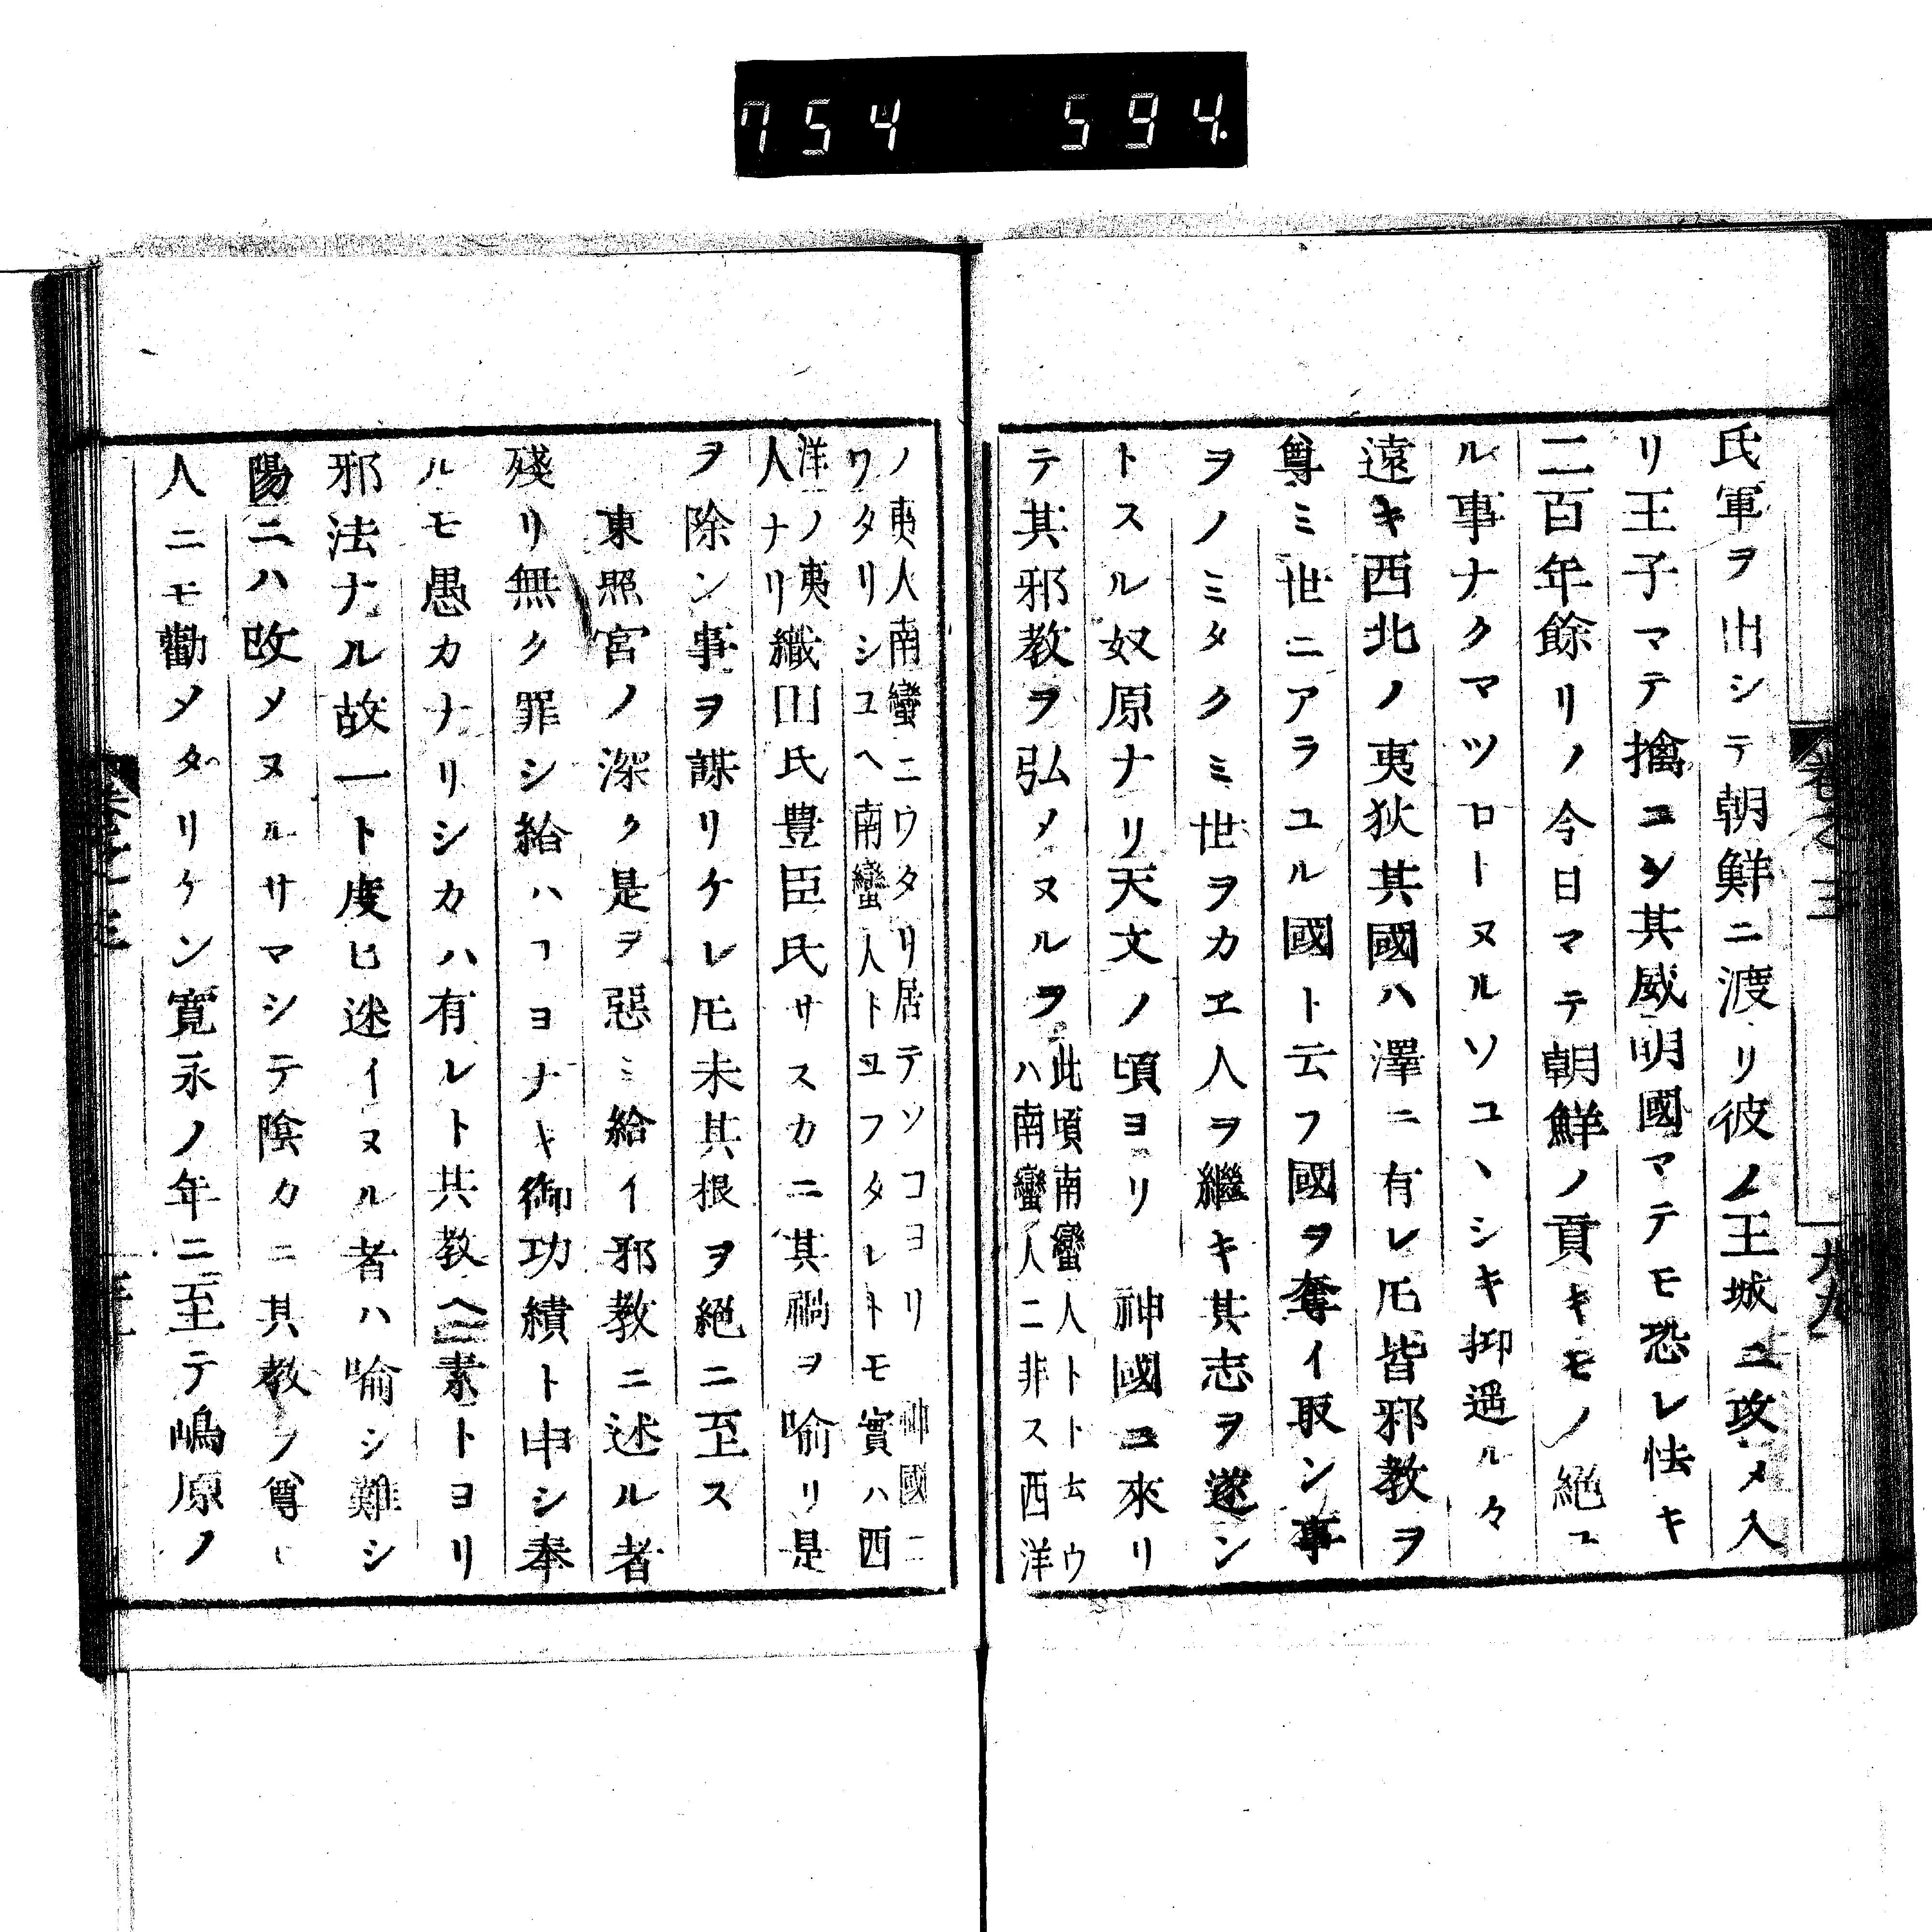 754 594.
氏軍ヲ出シテ朝鮮ニ渡リ彼ノ王城ニ攻メ入
リ王子マテ擒ニシ其威明國マテモ恐レ怯キ
二百年餘リノ今日マテ朝鮮ノ貢キモノ絶ユ
ル事ナクマツロヒヌルソユヽシキ抑遥ル々
遠キ西北ノ夷狄其國ハ澤ニ有レ𪜈皆邪教ヲ
尊ミ世ニアラユル國ト云フ國ヲ奪イ取ン事
ヲノミタクミ世ヲカエ人ヲ繼キ其志ヲ遂ン
トスル奴原ナリ天文ノ頃ヨリ 神國ニ來リ
テ其邪教ヲ弘メヌルヲ
此頃南蠻人トトナウ
ハ南蠻人ニ非ス西洋
ノ夷人南蠻ニワタリ居テソコヨリ 神國ニ
ワタリシユヘ南蠻人トヨフタレトモ實ハ西
洋ノ夷
人ナリ
織田氏豊臣氏サスカニ其禍ヲ喻リ是
ヲ除ン事ヲ謀リケレ𪜈未其根ヲ絶ニ至ス
東照宮ノ深ク是ヲ惡ミ給イ邪教ニ述ル者
殘リ無ク罪シ給ハヿヨナキ御功績ト申シ奉
ルモ愚カナリシカハ有レト其教ヘ素トヨリ
邪法ナル故一ト度ヒ迷イヌル者ハ喻シ難シ
陽ニハ改メヌルサマシテ陰カニ其教ノ尊ヒ
人ニモ勸メタリケン寛永ノ年ニ至テ嶋原ノ